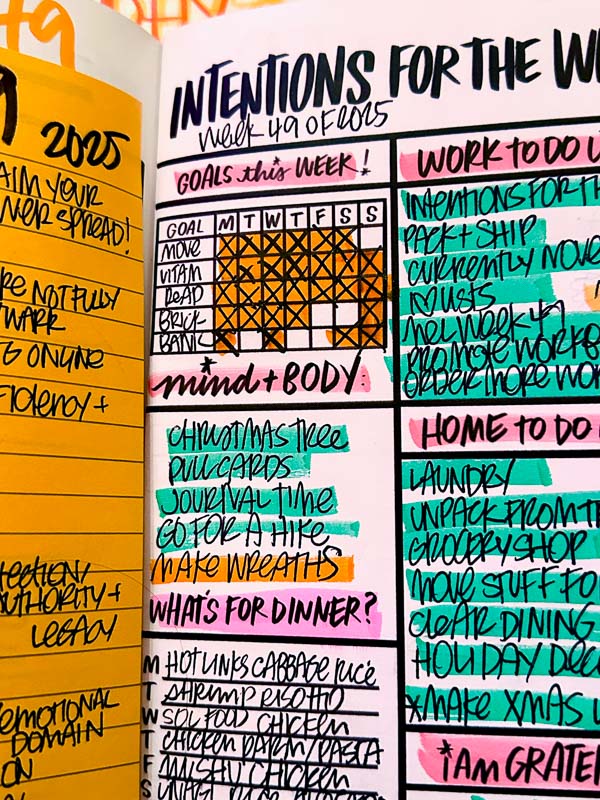 49
2025
AIM YOUR
WER SPREAD!
RE NOT FULLY
TWARK
G ONLINE
FICIENCY +
TECTION/
AUTHORITY +
LEGACY
EMOTIONAL
DOMAIN
ON
INTENTIONS FOR THE WE
WEEK 49 OF 2025
GOALS this WEEK!
GOAL M T W T F S S
MOVE
VITAM
READ
BRICK
BANK
mind + BODY:
CHRISTMAS TREE
PULL CARDS
JOURNAL TIME
GO FOR A HIKE
MAKE WREATHS
WHAT'S FOR DINNER?
M HOT LINKS CABBAGE RICE
T SHRIMP RISOTTO
W SOUL FOOD CHICKEN
T CHICKEN PARM/PASTA
F CHICKEN
S
WORK TO DO
INTENTIONS FOR TH
PACK + SHIP
CURRENTLY NOVE
LISTS
WEEK 49
PROMOTE WORKBO
ORDER MORE WOR
HOME TO DO
LAUNDRY
UNPACK FROM TR
GROCERY SHOP
MOVE STUFF FO
CLEAR DINING
HOLIDAY DEC
*MAKE XMAS
*I AM GRATEF